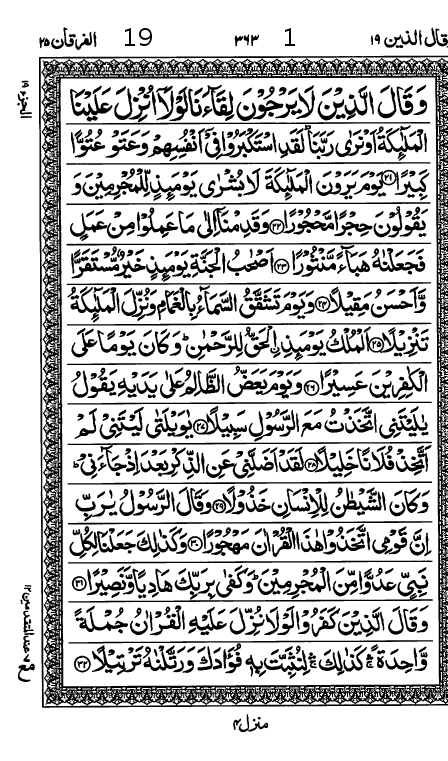 قال الذين ١٩ 1 ٣٦٣ 19 الفرقان ٢٥
وَقَالَ الَّذِيْنَ لَا يَرْجُوْنَ لِقَآءَنَا لَوْلَآ اُنْزِلَ عَلَيْنَا
الْمَلٰٓئِكَةُ اَوْ نَرٰى رَبَّنَا ؕ لَقَدِ اسْتَكْبَرُوْا فِيْٓ اَنْفُسِهِمْ وَعَتَوْ عُتُوًّا
كَبِيْرًا ﴿٢١﴾ يَوْمَ يَرَوْنَ الْمَلٰٓئِكَةَ لَا بُشْرٰى يَوْمَئِذٍ لِّلْمُجْرِمِيْنَ وَ
يَقُوْلُوْنَ حِجْرًا مَّحْجُوْرًا ﴿٢٢﴾ وَقَدِمْنَآ اِلٰى مَا عَمِلُوْا مِنْ عَمَلٍ
فَجَعَلْنٰهُ هَبَآءً مَّنْثُوْرًا ﴿٢٣﴾ اَصْحٰبُ الْجَنَّةِ يَوْمَئِذٍ خَيْرٌ مُّسْتَقَرًّا
وَّاَحْسَنُ مَقِيْلًا ﴿٢٤﴾ وَيَوْمَ تَشَقَّقُ السَّمَآءُ بِالْغَمَامِ وَنُزِّلَ الْمَلٰٓئِكَةُ
تَنْزِيْلًا ﴿٢٥﴾ اَلْمُلْكُ يَوْمَئِذِ ِۨالْحَقُّ لِلرَّحْمٰنِ ؕ وَكَانَ يَوْمًا عَلَى
الْكٰفِرِيْنَ عَسِيْرًا ﴿٢٦﴾ وَيَوْمَ يَعَضُّ الظَّالِمُ عَلٰى يَدَيْهِ يَقُوْلُ
يٰلَيْتَنِى اتَّخَذْتُ مَعَ الرَّسُوْلِ سَبِيْلًا ﴿٢٧﴾ يٰوَيْلَتٰى لَيْتَنِيْ لَمْ
اَتَّخِذْ فُلَانًا خَلِيْلًا ﴿٢٨﴾ لَقَدْ اَضَلَّنِيْ عَنِ الذِّكْرِ بَعْدَ اِذْ جَآءَنِيْ ؕ
وَكَانَ الشَّيْطٰنُ لِلْاِنْسَانِ خَذُوْلًا ﴿٢٩﴾ وَقَالَ الرَّسُوْلُ يٰرَبِّ
اِنَّ قَوْمِى اتَّخَذُوْا هٰذَا الْقُرْاٰنَ مَهْجُوْرًا ﴿٣٠﴾ وَكَذٰلِكَ جَعَلْنَا لِكُلِّ
نَبِيٍّ عَدُوًّا مِّنَ الْمُجْرِمِيْنَ ؕ وَكَفٰى بِرَبِّكَ هَادِيًا وَّنَصِيْرًا ﴿٣١﴾
وَقَالَ الَّذِيْنَ كَفَرُوْا لَوْلَا نُزِّلَ عَلَيْهِ الْقُرْاٰنُ جُمْلَةً
وَّاحِدَةً ۛۚ كَذٰلِكَ ۛۚ لِنُثَبِّتَ بِهٖ فُؤَادَكَ وَرَتَّلْنٰهُ تَرْتِيْلًا ﴿٣٢﴾
منزل ٤
الجزء ١٩